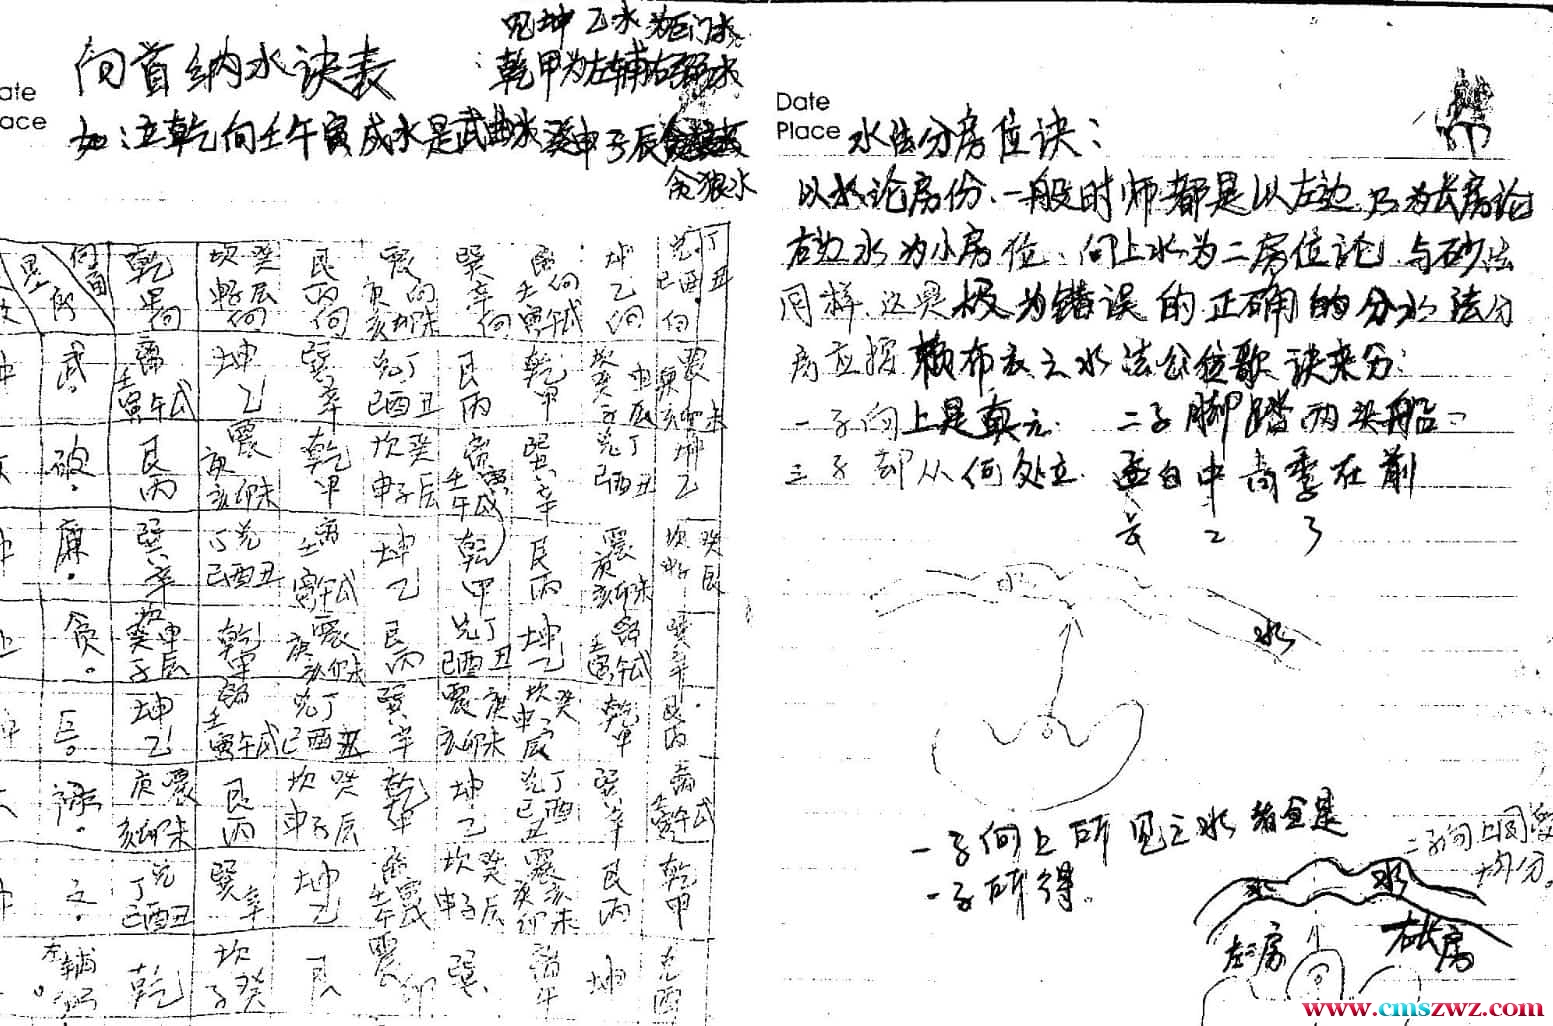 向首纳水诀表
见坤乙水为巨门水
乾甲为左辅右弼水
如：立乾向壬午寅戌水是武曲水 癸申子辰
贪狼水
向首
星
乾甲向
坎癸申子辰向
艮丙向
震庚亥卯未向
巽辛向
离向壬寅午戌
坤乙向
兑丁巳酉丑向
武。
离壬寅午戌
坤乙
巽辛
兑丁巳酉丑
艮丙
乾甲
坎癸申子辰
震庚亥卯未
破。
艮丙
震庚亥卯未
乾甲
坎癸申子辰
离壬寅午戌
巽辛
兑丁巳酉丑
坤乙
廉。
巽辛
兑丁巳酉丑
离壬寅午戌
坤乙
乾甲
艮丙
震庚亥卯未
坎癸申子辰
贪。
坎癸申子辰
乾甲
震庚亥卯未
艮丙
兑丁巳酉丑
坤乙
离壬寅午戌
巽辛
巨。
坤乙
离壬寅午戌
兑丁巳酉丑
巽辛
震庚亥卯未
坎癸申子辰
乾甲
艮丙
禄。
震庚亥卯未
艮丙
坎癸申子辰
乾甲
坤乙
兑丁巳酉丑
巽辛
离壬寅午戌
文。
兑丁巳酉丑
巽辛
坤乙
离壬寅午戌
坎癸申子辰
震庚亥卯未
艮丙
乾甲
左辅
乾
坎癸子
艮
震卯
巽
离午
坤
兑酉
Date
Place
水法分房位诀：
以水论房份、一般时师都是以左边水为长房论
右边水为小房位、向上水为二房位论、与砂法
同样、这是极为错误的、正确的分水法分
房应按赖布衣之水法公位歌诀来分：
一子向上是真元、二子脚踏两头船、
三子却从何处立、孟自中高季在前
长 二 3
水
水
一子向上所见之水者全是
一子所得。
二子向上同
均分。
水
水
左二房
右长房
www.cmszwz.com